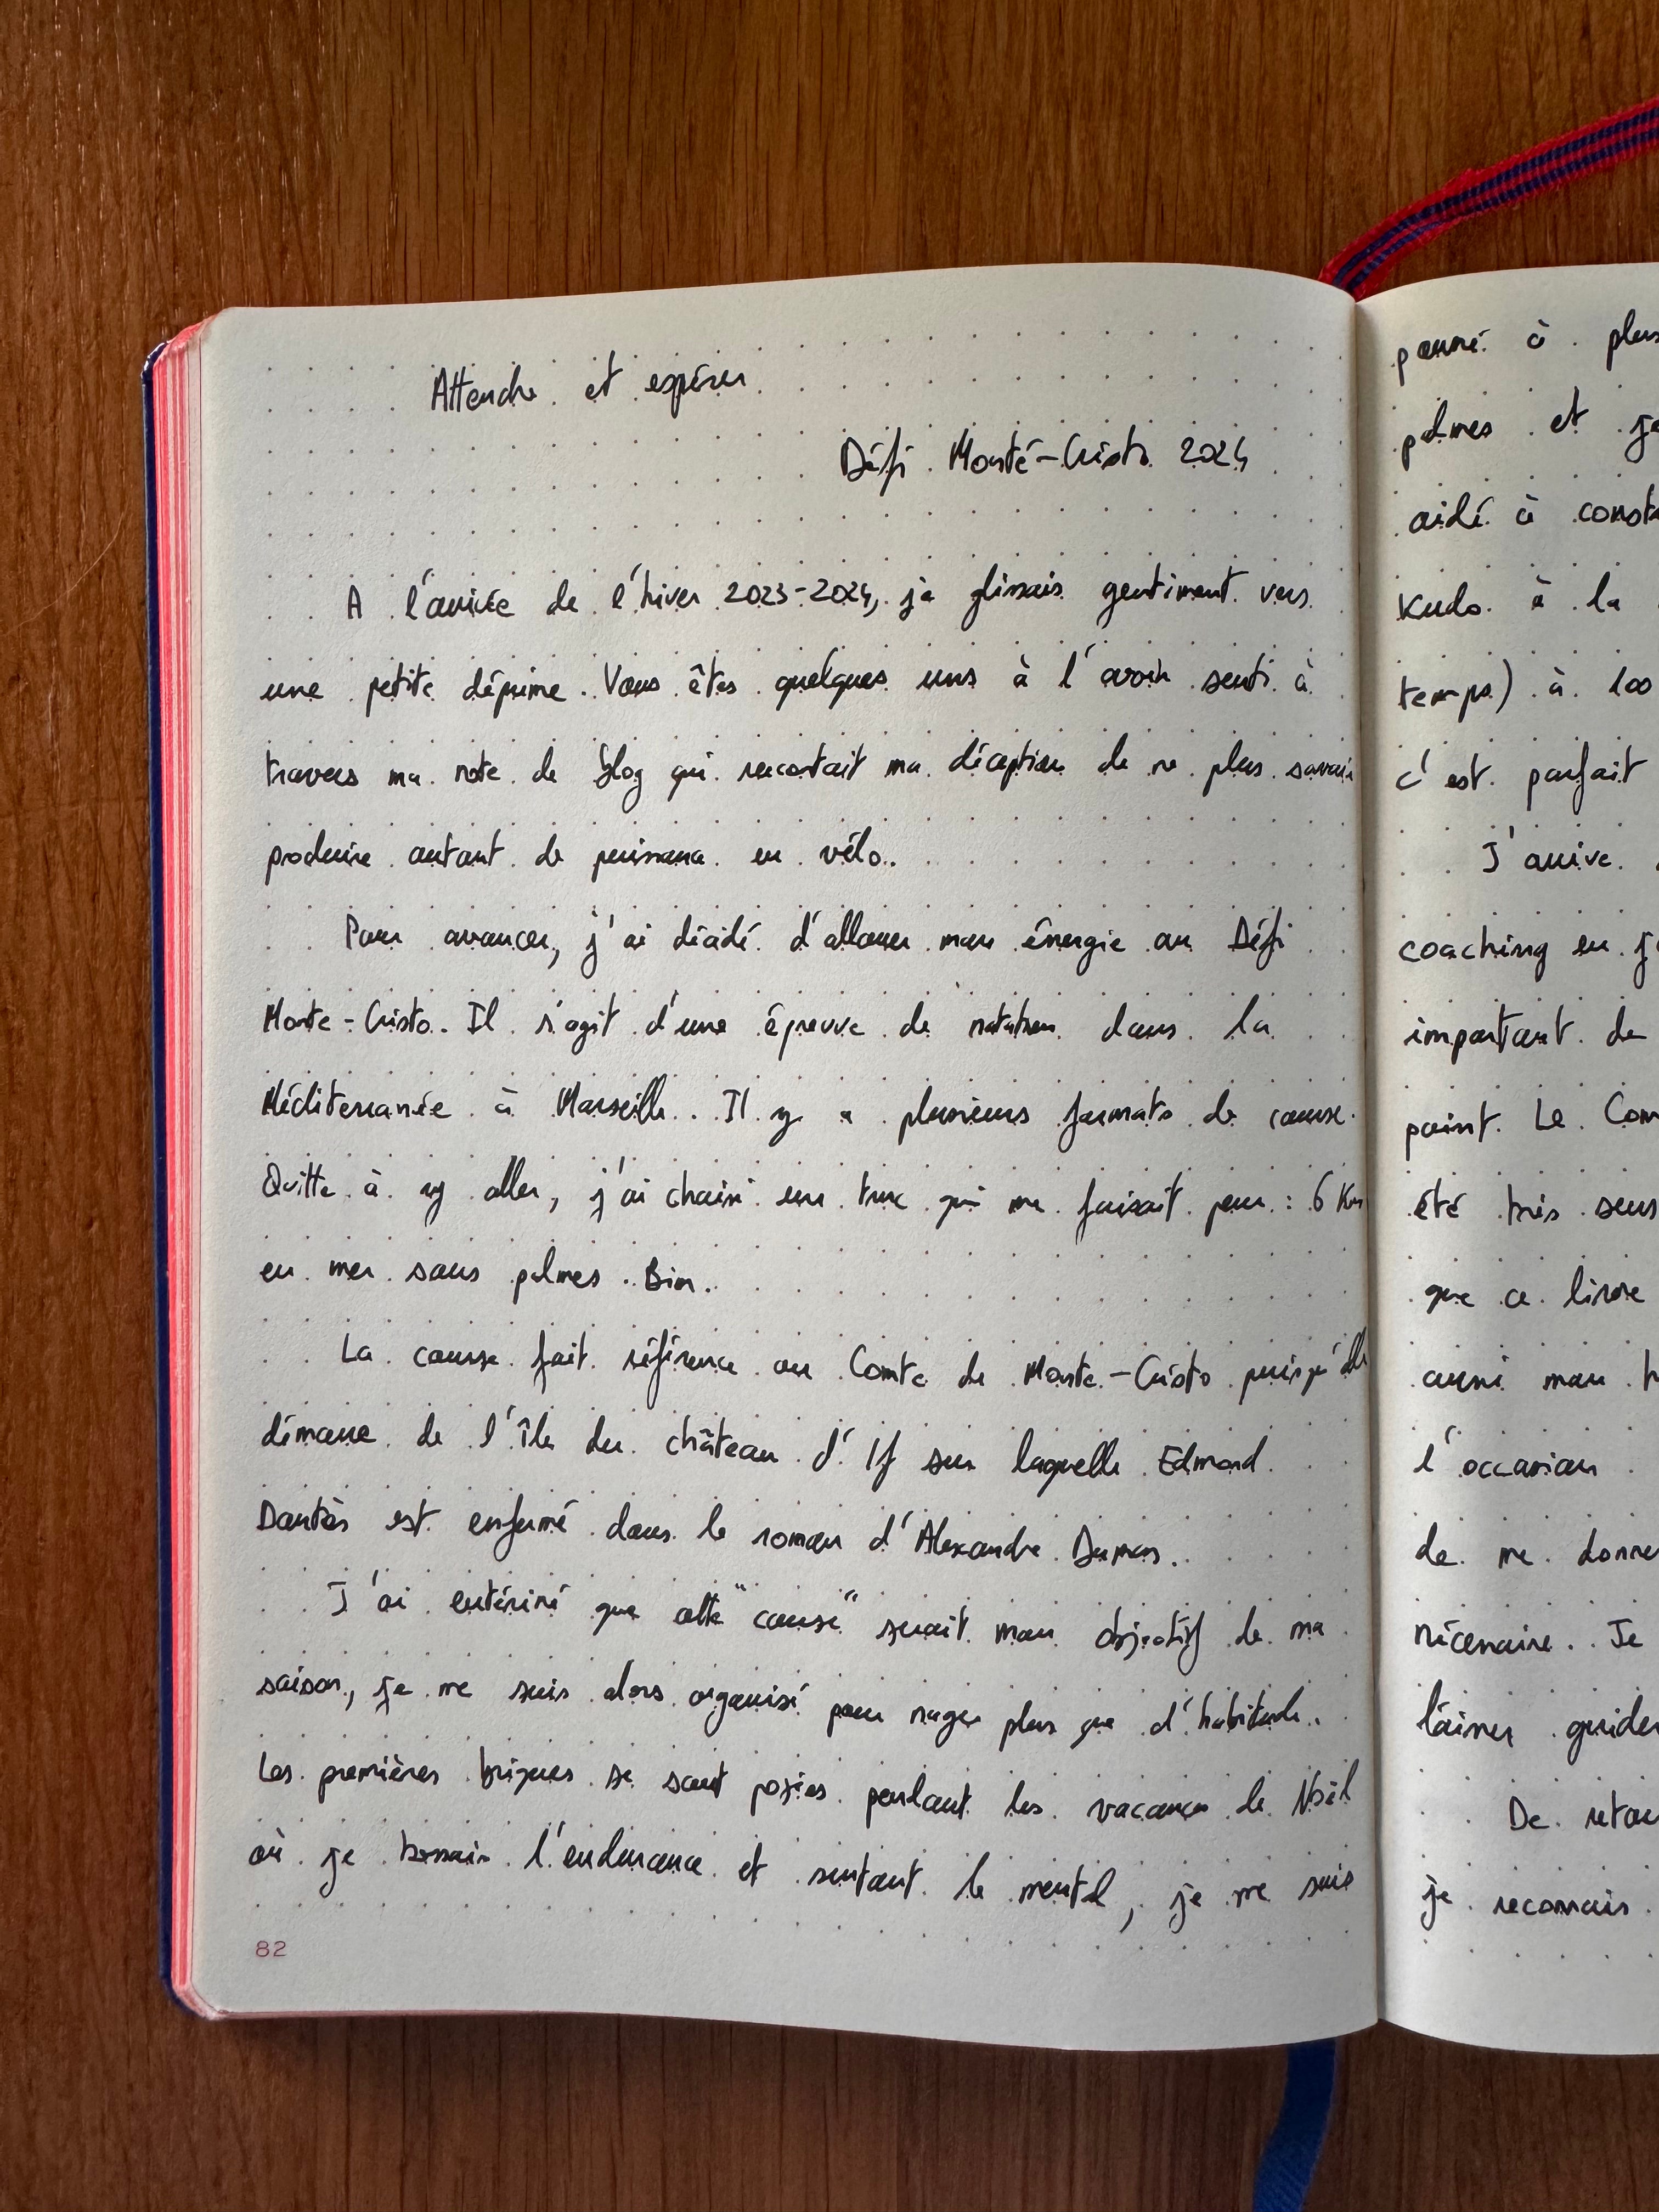 Attendre et espérer
Défi Monté-Cristo 2024
A l'arrivée de l'hiver 2023-2024, je glissais gentiment vers
une petite déprime. Vous êtes quelques uns à l'avoir senti à
travers ma note de blog qui racontait ma déception de ne plus savoir
produire autant de puissance en vélo.
Pour avancer, j'ai décidé d'allouer mon énergie au Défi
Monte-Cristo. Il s'agit d'une épreuve de natation dans la
Méditerranée à Marseille. Il y a plusieurs formats de course.
Quitte à y aller, j'ai choisi un truc qui me faisait peur : 6 Km
en mer sans palmes. Bim.
La course fait référence au Comte de Monte-Cristo puisqu'elle
démarre de l'île du château d'If sur laquelle Edmond
Dantès est enfermé dans le roman d'Alexandre Dumas.
J'ai entériné que cette "course" serait mon objectif de ma
saison, je me suis alors organisé pour nager plus que d'habitude.
Les premières briques se sont posées pendant les vacances de Noël
où je bossais l'endurance et surtout le mental, je me suis
82
à plus
palmes et je
aidé à
Kudo à la
temps) à 100
c'est parfait
J'arrive
coaching en
important de
point. Le Com
été très sens
que ce livre
aussi mon
l'occasion
de me donne
nécessaire. Je
laisser guider
De retou
je reconnais